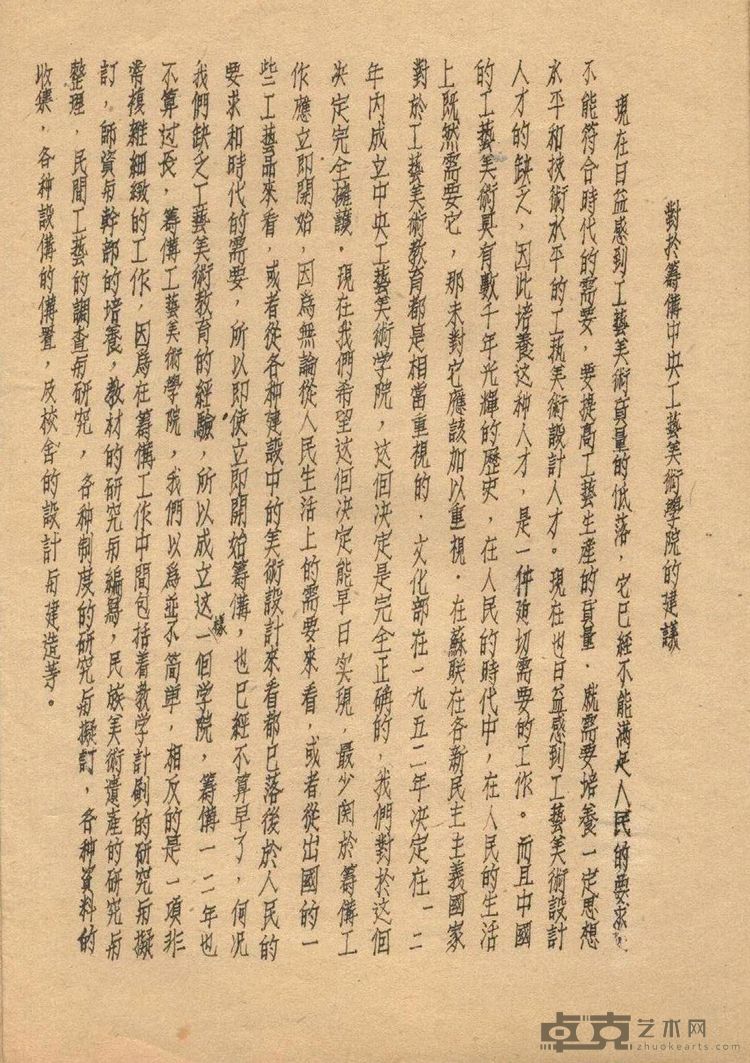 對於籌備中央工藝美術學院的建議
現在日益感到工藝美術貭量的低落，它已經不能滿足人民的要求，
不能符合時代的需要，要提高工藝生產的貭量．就需要培養一定思想
水平和技術水平的工藝美術設計人才。現在也日益感到工藝美術設計
人才的缺乏，因此培養这种人才，是一件迫切需要的工作。而且中國
的工藝美術具有數千年光輝的歷史，在人民的時代中，在人民的生活
上既然需要它，那末對它應該加以重視．在蘇联在各新民主主義國家
對於工藝美術教育都是相當重視的．文化部在一九五二年決定在一二
年內成立中央工藝美術学院，这個决定是完全正确的，我們對於這個
决定完全擁護。現在我們希望这個决定能早日实現，最少関於籌備工
作應立即開始，因為無論從人民生活上的需要來看，或者從出國的一
些工藝品來看，或者從各种建設中的美術設計來看都已落後於人民的
要求和時代的需要，所以即使立即開始籌備，也已經不算早了，何况
我們缺乏工藝美術教育的經驗，所以成立这樣一個学院，籌備一二年也
不算过長，籌備工藝美術學院，我們以為並不简單，相反的是一項非
常複雜細緻的工作，因為在籌備工作中間包括着教学計劃的研究与擬
訂，師資与幹部的培養，教材的研究与編寫，民族美術遺產的研究与
整理，民間工藝的調查与研究，各种制度的研究与擬訂，各种資料的
收集，各种設備的備置，及校舍的設計与建造等。
卓克艺术网
zhuokearts.com